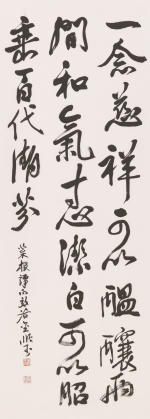 一念慈祥可以醞釀兩
間和氣寸心潔白可以昭
垂百代清芬
菜根譚